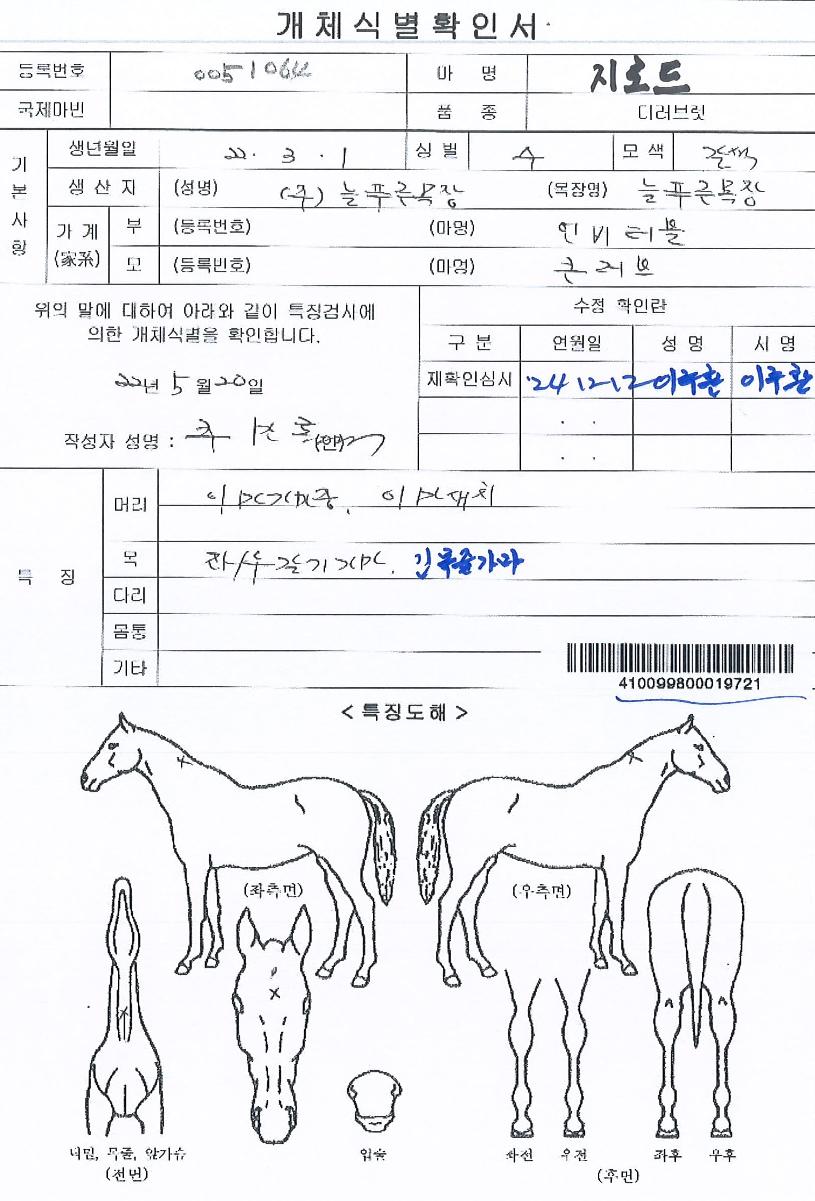 개체식별확인서
등록번호 0051064 마 명 지로드
국제마번 품 종 더러브렛
기본사항
생년월일 22. 3. 1 성 별 수 모 색 갈색
생 산 자 (성명) (주) 늘푸른목장 (목장명) 늘푸른목장
가 계 (家系) 부 (등록번호) (마명) 인비터블
모 (등록번호) (마명) 큰러브
위의 말에 대하여 아래와 같이 특징검사에
의한 개체식별을 확인합니다.
22년 5월 20일
작성자 성명 : (인)
수정 확인란
구 분 연월일 성 명 서 명
재확인심사 '24 12.12 이주환 이주환
. .
. .
특 징
머리
목 좌/우
다리
몸통
기타
410099800019721
< 특징도해 >
(좌측면) (우측면)
턱밑, 목줄, 앞가슴 입술 좌전 우전 좌후 우후
(전면) (후면)